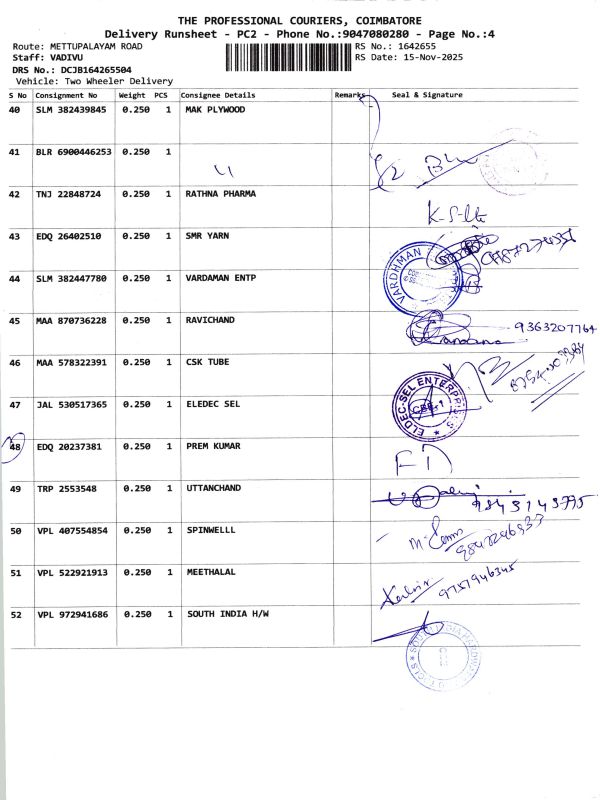 THE PROFESSIONAL COURIERS, COIMBATORE
Delivery Runsheet - PC2 - Phone No.:9047080280 - Page No.:4
Route: METTUPALAYAM ROAD RS No.: 1642655
Staff: VADIVU RS Date: 15-Nov-2025
DRS No.: DCJB164265504
Vehicle: Two Wheeler Delivery
S No Consignment No Weight PCS Consignee Details Remarks Seal & Signature
40 SLM 382439845 0.250 1 MAK PLYWOOD
41 BLR 6900446253 0.250 1
42 TNJ 22848724 0.250 1 RATHNA PHARMA
43 EDQ 26402510 0.250 1 SMR YARN
44 SLM 382447780 0.250 1 VARDAMAN ENTP VARDHMAN
45 MAA 870736228 0.250 1 RAVICHAND 9363207764
46 MAA 578322391 0.250 1 CSK TUBE
47 JAL 530517365 0.250 1 ELEDEC SEL ELDEC-SEL ENTERPRISES
48 EDQ 20237381 0.250 1 PREM KUMAR
49 TRP 2553548 0.250 1 UTTANCHAND 9843143795
50 VPL 407554854 0.250 1 SPINWELLL
51 VPL 522921913 0.250 1 MEETHALAL 9757946345
52 VPL 972941686 0.250 1 SOUTH INDIA H/W